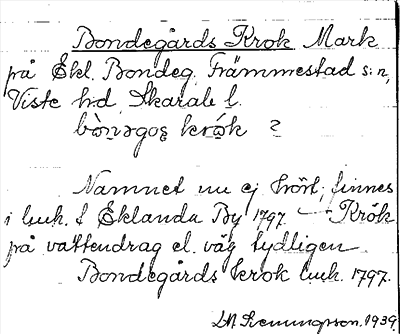 Bondegårds Krok Mark
på Ekl. Bondeg. Främmestad s:n,
Viste hd, Skarab l.
bò̱nəgoș krò̱k ?
Namnet nu ej hört; finnes
i luk. f Eklanda By 1797. — Krök
på vattendrag el. väg tydligen
Bondegårds krok luk. 1797.
1939.